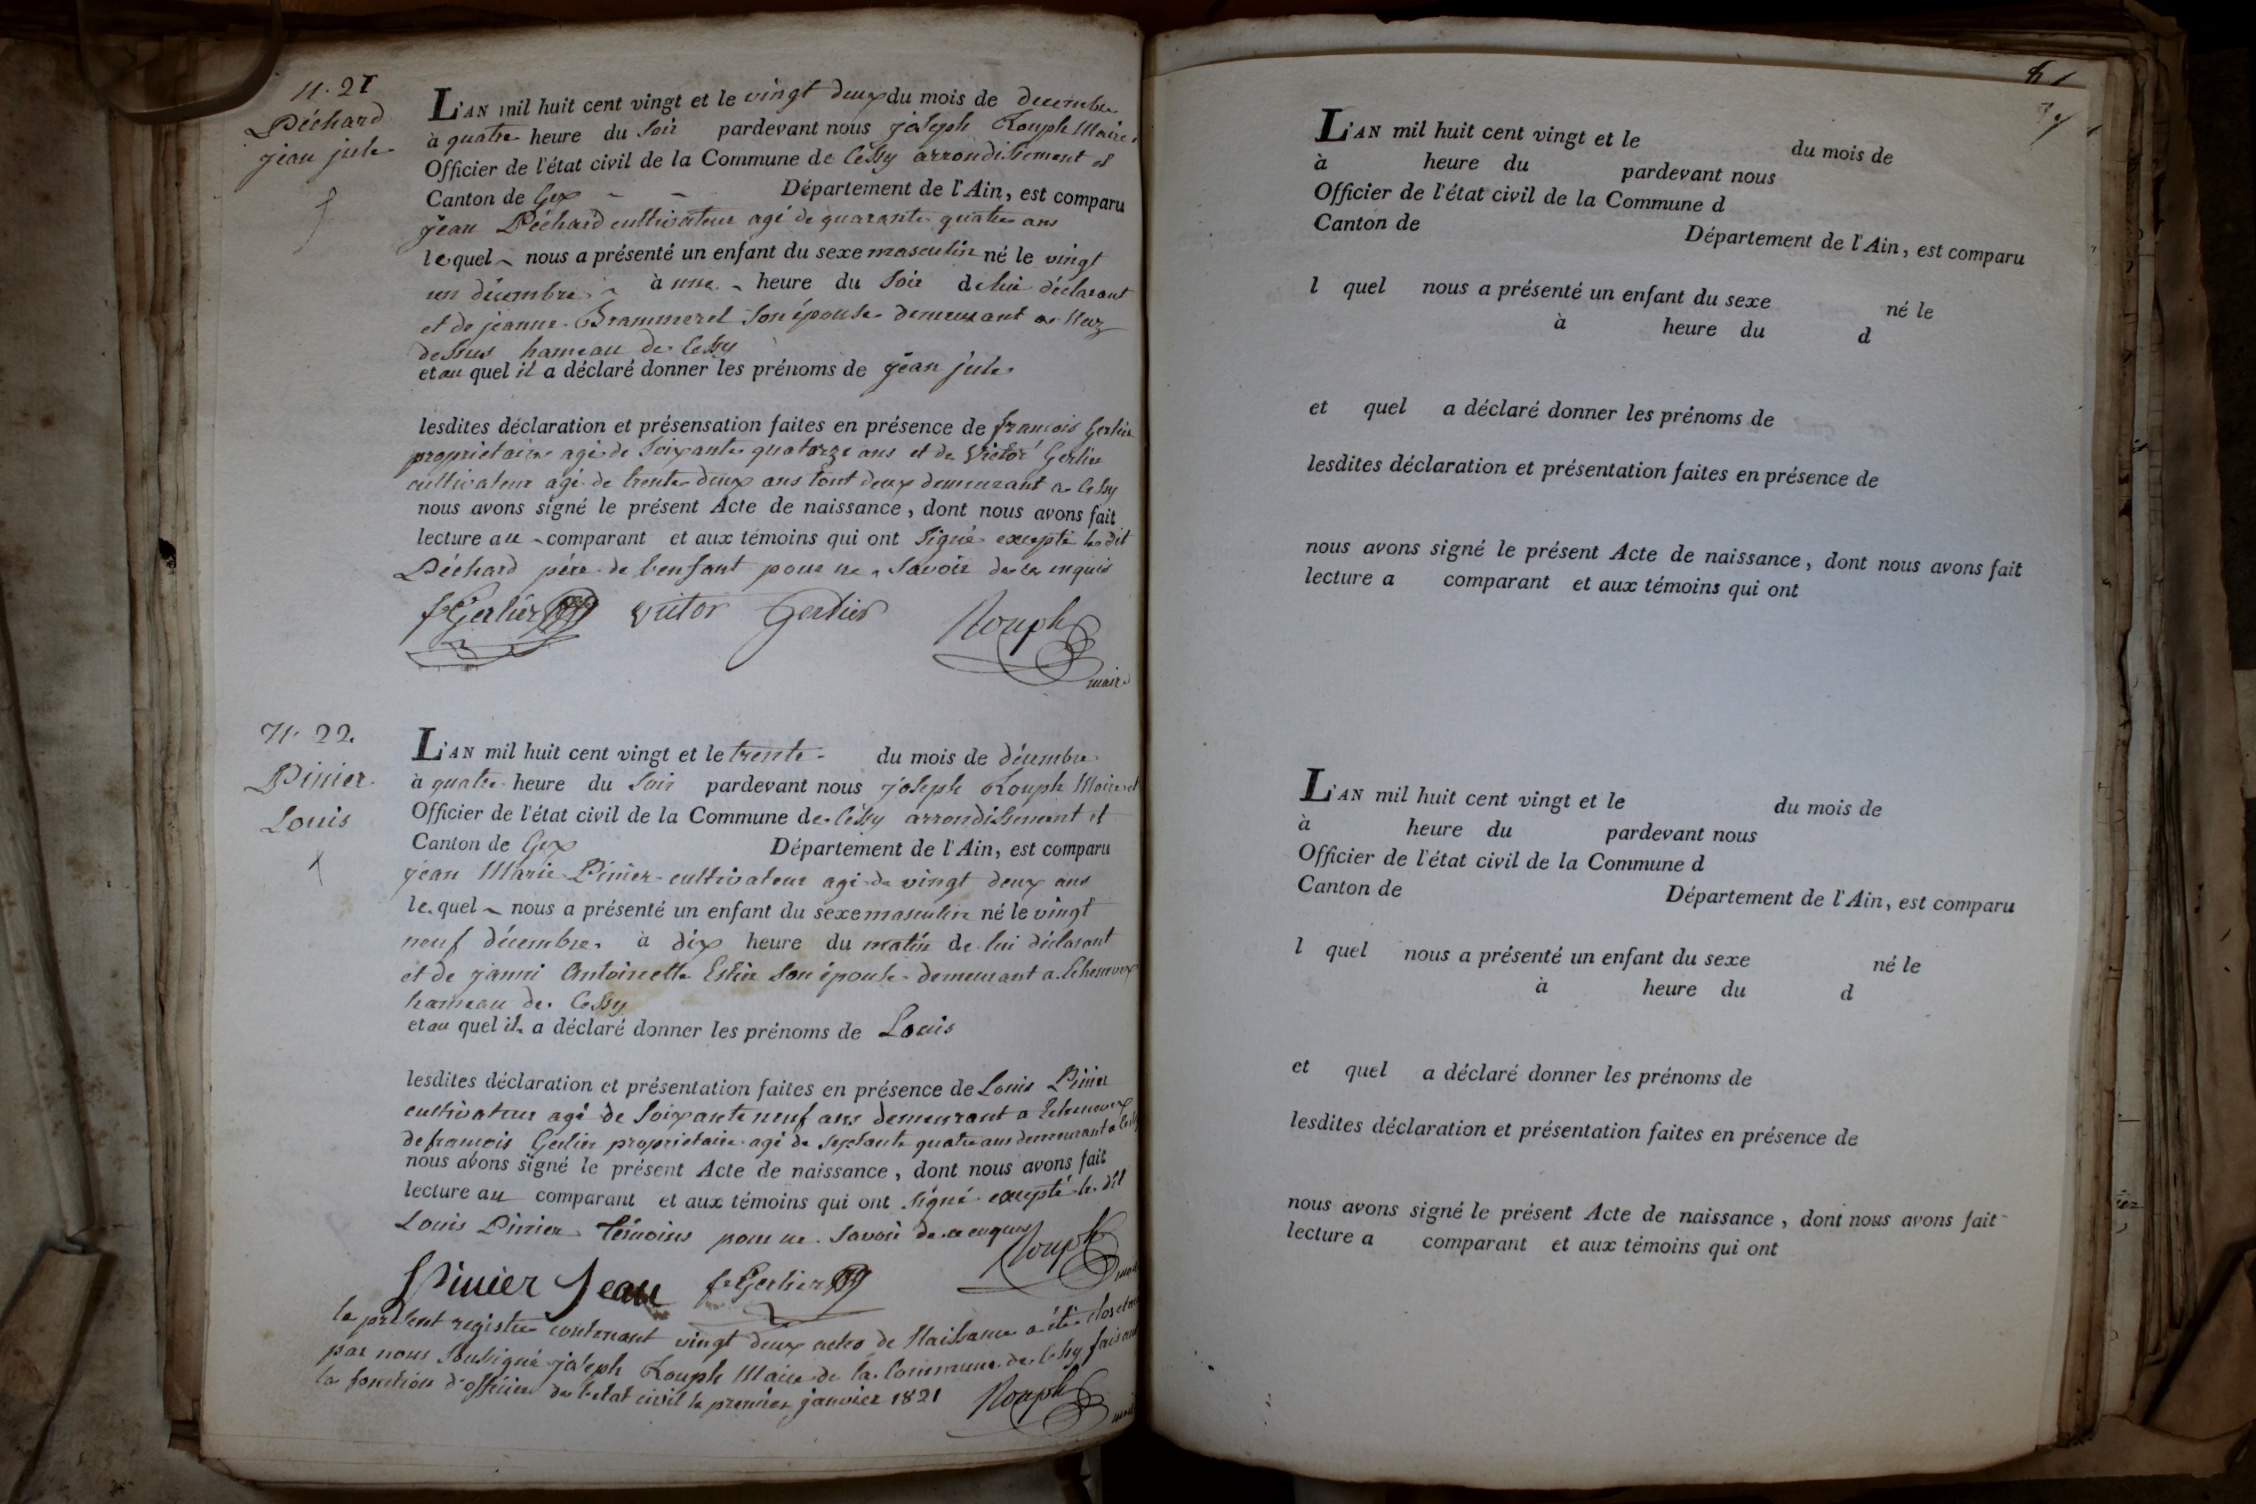 N. 21
Péchard
jean jule
L'AN mil huit cent vingt et le vingt deux du mois de decembre
à quatre heure du soir pardevant nous joseph Rouph Maire
Officier de l'état civil de la Commune de Cessy arrondissement et
Canton de Gex Département de l'Ain, est comparu
jean Péchard cultivateur agé de quarante quatre ans
lequel nous a présenté un enfant du sexe masculin né le vingt
un décembre à une heure du soir de lui déclarant
et de jeanne Brammerel son épouse demeurant a
dessus hameau de Cessy
et au quel il a déclaré donner les prénoms de jean jule
lesdites déclaration et présensation faites en présence de francois Gerlier
proprietaire agé de soixante quatorze ans et de Victor Gerlier
cultivateur agé de trente deux ans tout deux demeurant a Cessy
nous avons signé le présent Acte de naissance, dont nous avons fait
lecture au comparant et aux témoins qui ont signé excepté le dit
Péchard pére de l'enfant pour ne savoir de ce enquis
f Gerlier victor Gerlier Rouph
maire
N. 22
Pinier
Louis
L'AN mil huit cent vingt et le trente du mois de décembre
à quatre heure du soir pardevant nous joseph Rouph Maire et
Officier de l'état civil de la Commune de Cessy arrondissement et
Canton de Gex Département de l'Ain, est comparu
jean Marie Pinier cultivateur agé de vingt deux ans
le quel nous a présenté un enfant du sexe masculin né le vingt
neuf décembre à dix heure du matin de lui déclarant
et de Antoinette son épouse demeurant a
hameau de Cessy
et au quel il a déclaré donner les prénoms de Louis
lesdites déclaration et présentation faites en présence de Louis Pinier
cultivateur agé de soixante neuf ans demeurant a
de francois Gerlier proprietaire agé de septante quatre ans demeurant a
nous avons signé le présent Acte de naissance, dont nous avons fait
lecture au comparant et aux témoins qui ont signé excepté le dit
Louis Pinier témoins pour ne savoir de ce enquis Rouph
Pinier Jean f Gerlier
le présent registre contenant vingt deux actes de Naissance a été clos
par nous soussigné joseph Rouph Maire de la Commune de Cessy faisant
la fonction d'officier de l'etat civil le premier janvier 1821 Rouph
L'AN mil huit cent vingt et le du mois de
à heure du pardevant nous
Officier de l'état civil de la Commune d
Canton de Département de l'Ain, est comparu
l quel nous a présenté un enfant du sexe né le
à heure du d
et quel a déclaré donner les prénoms de
lesdites déclaration et présentation faites en présence de
nous avons signé le présent Acte de naissance, dont nous avons fait
lecture a comparant et aux témoins qui ont
L'AN mil huit cent vingt et le du mois de
à heure du pardevant nous
Officier de l'état civil de la Commune d
Canton de Département de l'Ain, est comparu
l quel nous a présenté un enfant du sexe né le
à heure du d
et quel a déclaré donner les prénoms de
lesdites déclaration et présentation faites en présence de
nous avons signé le présent Acte de naissance, dont nous avons fait
lecture a comparant et aux témoins qui ont